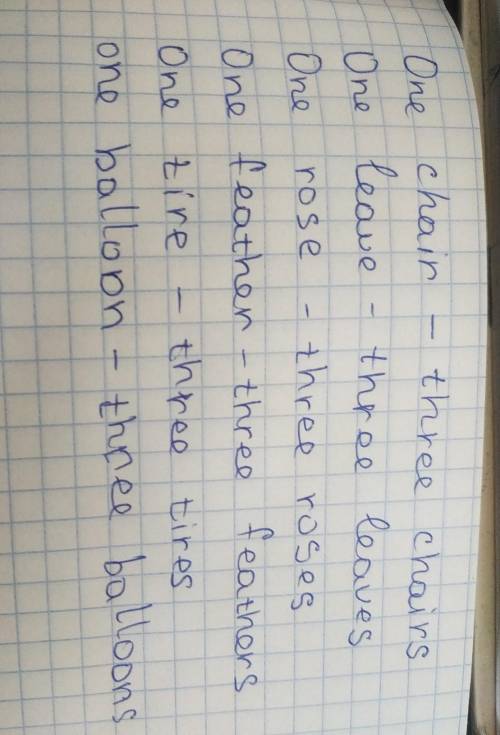 One chair - three chairs
One leave - three leaves
One rose - three roses
One feather - three feathers
One tire - three tires
one balloon - three balloons